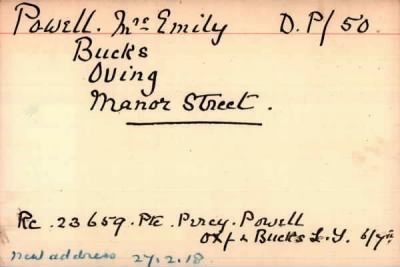 Powell. Mrs Emily D.P/50.
Bucks
Oving
Manor Street.
Re. 23659. Pte. Percy. Powell
Oxf & Bucks L.I. 6/7th
new address 27.2.18.